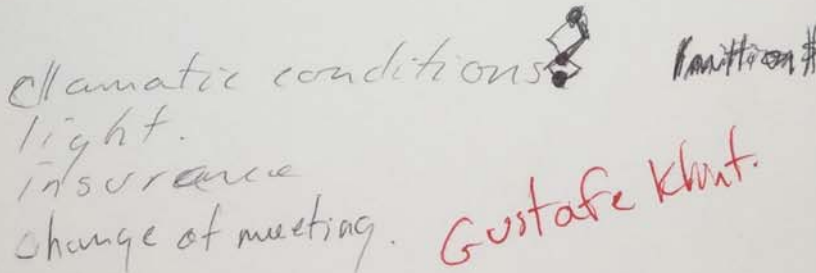 clamatic conditions
1 million $
light.
insurance
change of meeting.
Gustafe Khut.